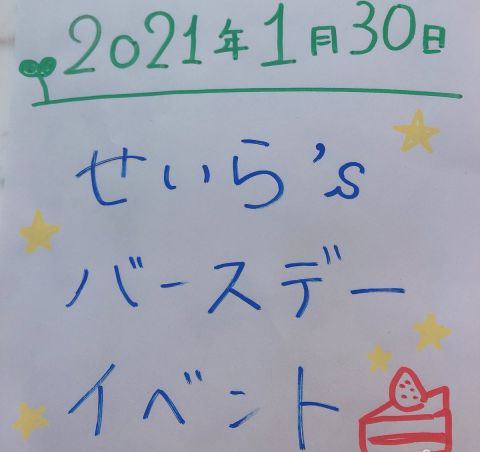 2021年1月30日
せいら's
バースデー
イベント